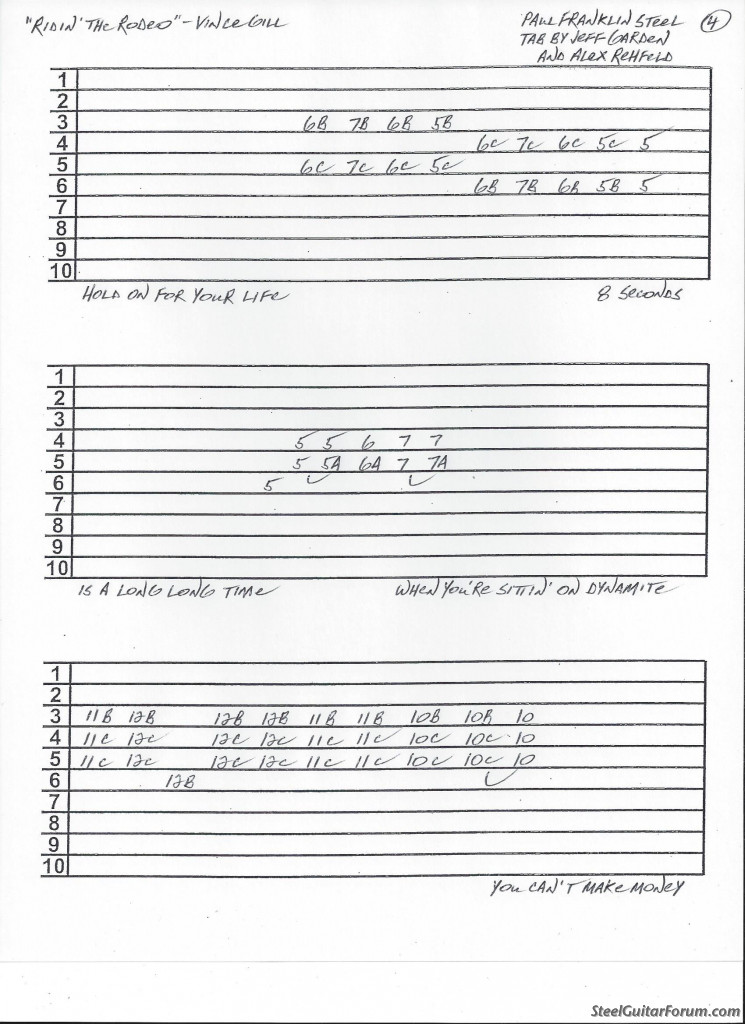 "RIDIN' THE RODEO" - VINCE GILL
PAUL FRANKLIN STEEL 4
TAB BY JEFF GARDEN
AND ALEX REHFELD
1
2
3 6B 7B 6B 5B
4 6C 7C 6C 5C 5
5 6C 7C 6C 5C
6 6B 7B 6B 5B 5
7
8
9
10
HOLD ON FOR YOUR LIFE 8 SECONDS
1
2
3
4 5 5 6 7 7
5 5 5A 6A 7 7A
6 5
7
8
9
10
IS A LONG LONG TIME WHEN YOU'RE SITTIN' ON DYNAMITE
1
2
3 11B 12B 12B 12B 11B 11B 10B 10B 10
4 11C 12C 12C 12C 11C 11C 10C 10C 10
5 11C 12C 12C 12C 11C 11C 10C 10C 10
6 12B
7
8
9
10
YOU CAN'T MAKE MONEY
SteelGuitarForum.com